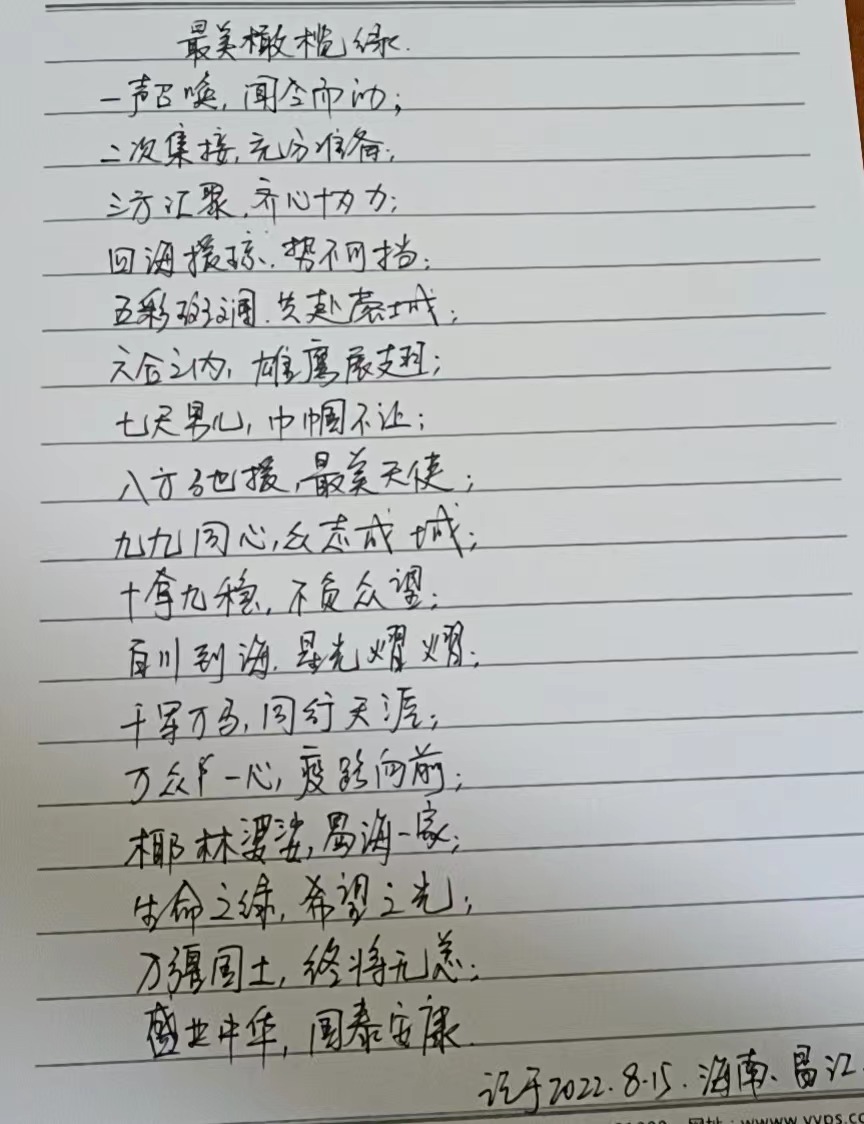 最美橄榄绿.
一声召唤，闻令而动；
二次集接，充分准备；
三方汇聚，齐心协力；
四海援琼，势不可挡；
五彩斑斓，共赴 城；
六合之内，雄鹰展翅；
七尺男儿，巾帼不让；
八方驰援，最美天使；
九九同心，众志成城；
十拿九稳，不负众望；
百川到海，星光熠熠；
千军万马，同行天涯；
万众一心，疫路向前；
椰林婆娑，昌海一家；
生命之绿，希望之光；
万疆国土，终将无恙；
盛世中华，国泰安康.
记于2022.8.15.海南、昌江.
www.yyps.co